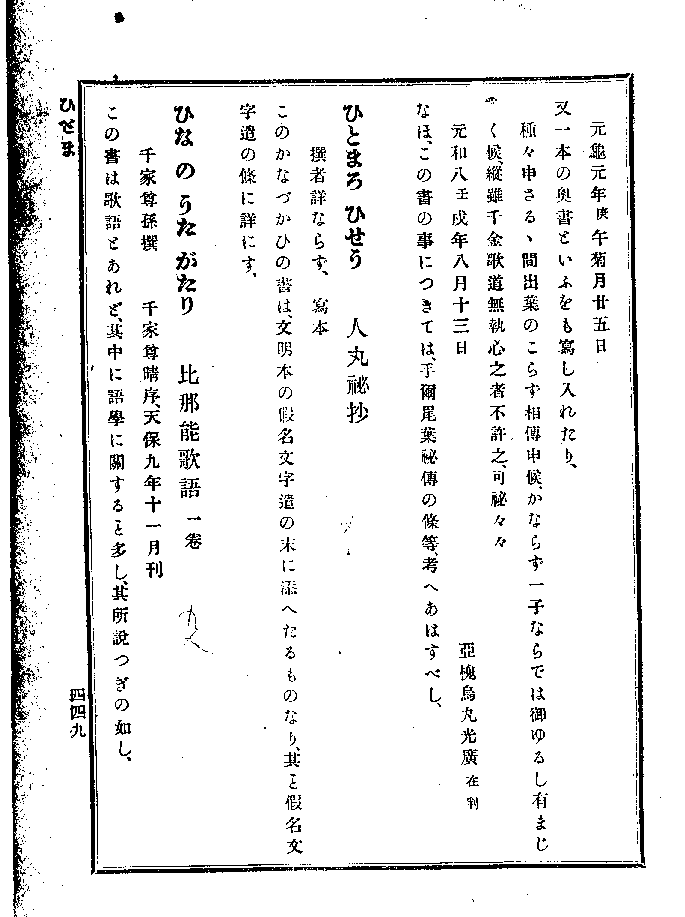 元龜元年庚午菊月廿五日
又一本の奥書といふをも寫し入れたり、
種々申さるヽ間出葉のこらず相傳申候、かならず一子ならでは御ゆるし有まじ
く候、縱雖千金歌道無執心之者不許之、可祕々々
元和八壬戌年八月十三日
亞槐烏丸光廣 在判
なほ、この書の事につきては、手爾尾葉祕傳の條等、考へあはすべし、
ひとまろ ひせう 人丸祕抄
撰者詳ならず、 寫本
このかなづかひの書は、文明本の假名文字遣の末に添へたるものなり、其と假名文
字遣の條に詳にす、
ひな の うた がたり 比那能歌語 一卷
千家尊孫撰 千家尊晴序、天保九年十一月刊
この書は歌語とあれど、其中に語學に關すると多し、其所說つぎの如し、
四四九